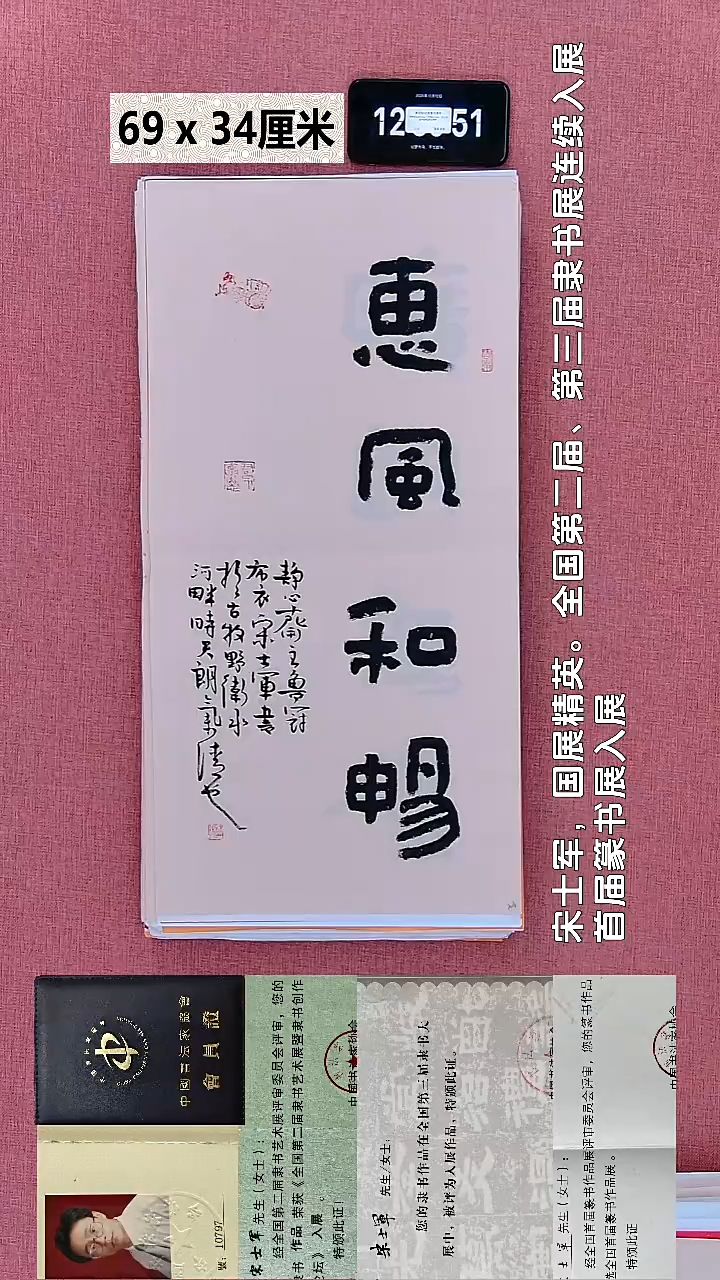 69 x 34厘米
12
51
惠風和暢
静心齋主魯冠
布衣宋士軍書
於古牧野衛水
河畔時天朗氣清也
宋士军，国展精英。全国第二届、第三届隶书展连续入展
首届篆书展入展
中國書法家協會
會員證
號：10797
宋士军 先生（女士）：
经全国第二届隶书艺术展评审委员会评审，您的
隶书 作品 荣获《全国第二届隶书艺术展暨隶书创作
论坛》 入展 。
特颁此证！
宋士軍 先生/女士：
您的隶书作品在全国第三届隶书大
展中，被评为入展作品，特颁此证。
士军 先生（女士）：
经全国首届篆书作品展评审委员会评审，您的篆书作品
选全国首届篆书作品展。
特颁此证